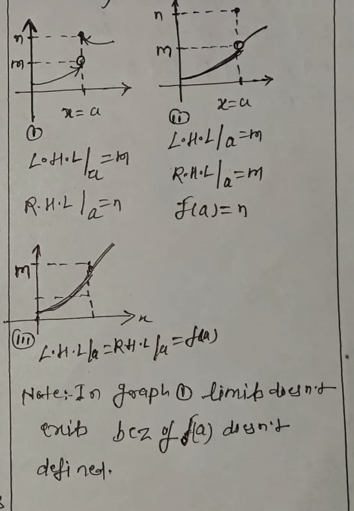 n
m
x=a
①
L.H.L/a=m
R.H.L/a=n
n
m
x=a
②
L.H.L/a=m
R.H.L/a=m
f(a)=n
m
x
③ L.H.L/a=R.H.L/a=f(a)
Note:- In graph ① limit doesn't
exit bcz of f(a) doesn't
defined.